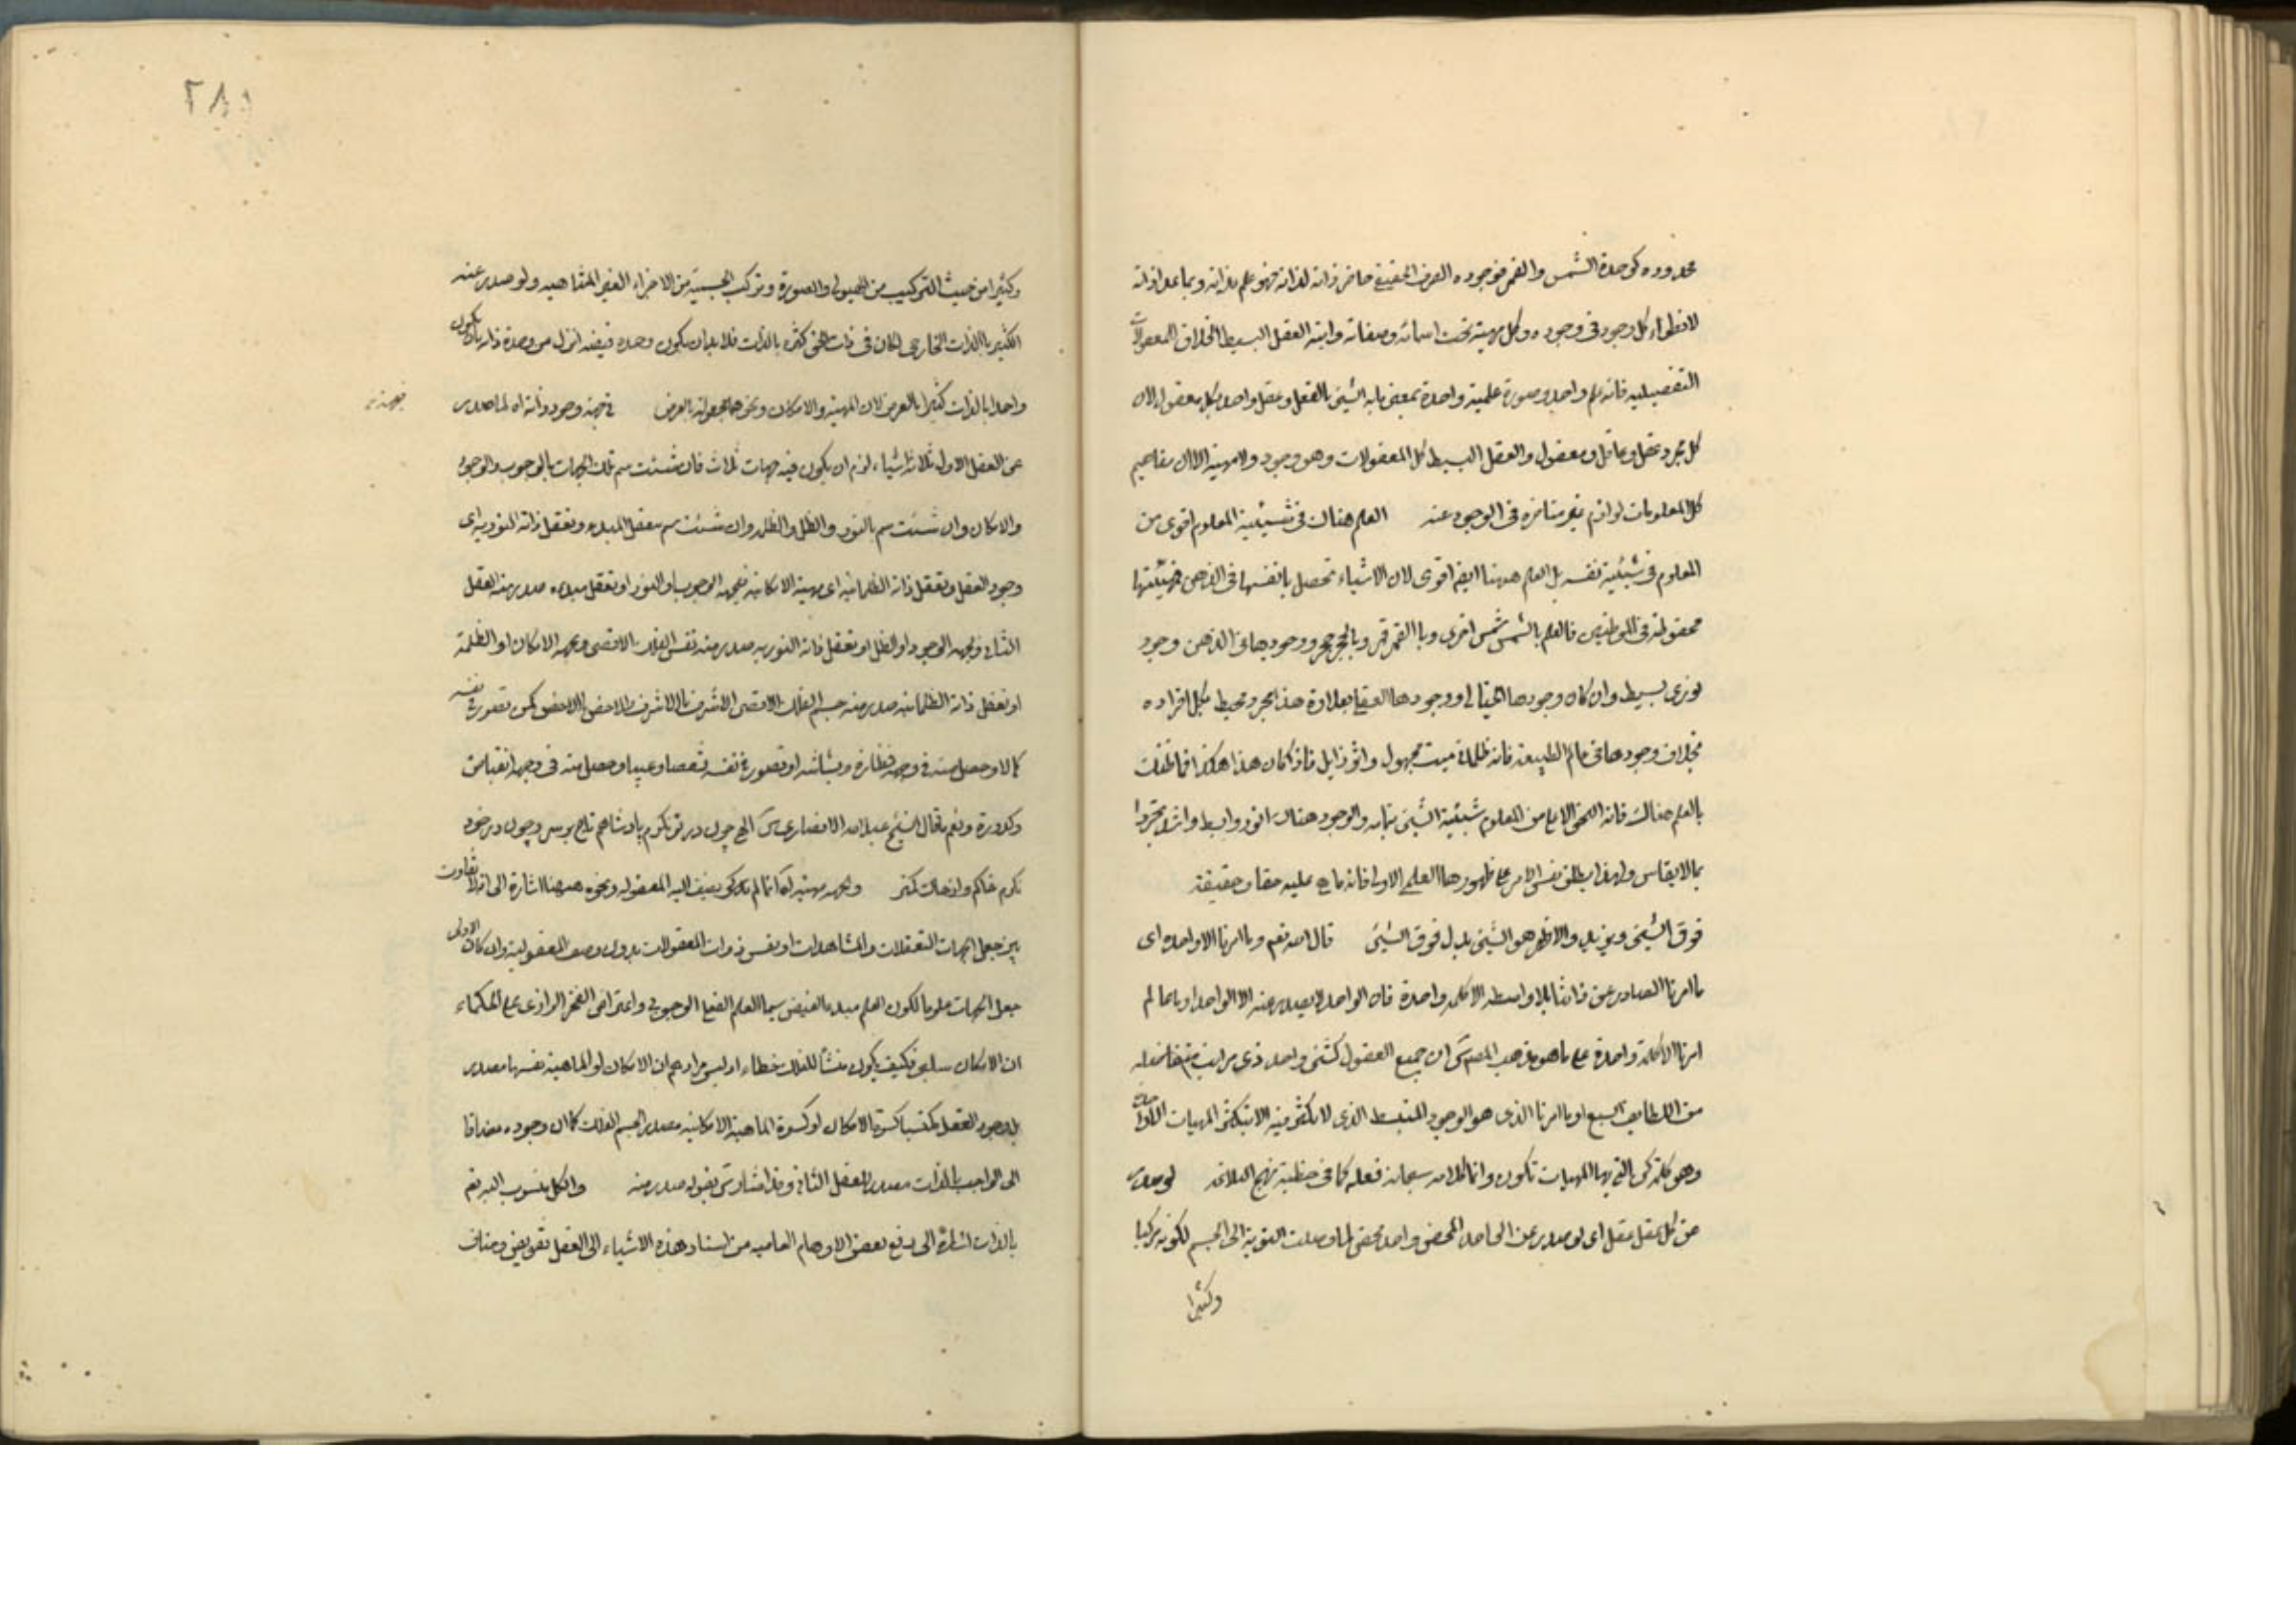 محدوده كوحدة الشمس والقمر فوجوده الصرف الحقيقى حاضر ذاته لذاته فهو علم بذاته وبما عدا ذاته
لانطواء كل وجود فى وجوده وكل مهية تحت اسمائه وصفاته وانه العقل البسيط الخلاق المعقولات
التفصيليه فانه علم واحد وصورة علمية واحدة بمعنى ما به الشىء بالفعل وعقل واحد بكل معقول لان
كل مجرد عقل وعاقل ومعقول والعقل البسيط كل المعقولات وهو وجود ولا مهية الا ان مفاهيم
كل المعلومات لوازم غير متاخره فى الوجود عنه العلم هناك فى شيئية المعلوم اقوى من
المعلوم فى شيئية نفسه بل العلم ههنا ايض اقوى لان الاشياء تحصل بانفسها فى الذهن فشيئيتها
محفوظة فى الموطنين فالعلم بالشمس شمس اخرى وبالقمر قمر وبالحجر حجر ووجودها فى الذهن وجود
نورى بسيط وان كان وجودها الخيالى او وجودها العقلى بعلاوة هذا مجرد محيط بكل افراده
بخلاف وجودها فى عالم الطبيعة فانه ظلمانى ميت مجهول واثر زايل فاذا كان هذا هكذا فما ظنك
بالعلم هناك فانه النحو الاعلى من المعلوم شيئية الشىء بتمامه والوجود هناك انور وابسط واشد تجردا
بما لا يقاس ولهذا يطلق نفس الامر على ظهورها العلمى الاولى فانه ما هى عليه حقا وحقيقة
فوق الشىء ويزيد والاظهر هو الشىء بدل فوق الشىء قال الله تعم وما امرنا الا واحدة اى
ما امرنا الصادر عن ذاتنا بلا واسطه الا كلمه واحدة فان الواحد لا يصدر عنه الا الواحد او ما عالم
امرنا الا كلمة واحدة على ما هو مذهب المص ان جميع العقول كشىء واحد ذى مراتب
من اللطايف السبع او ما امرنا الذى هو الوجود المنبسط الذى لا تكثر فيه الا بتكثر المهيات
وهو كلمة كن التى بها المهيات تكون وانما كلامه سبحانه فعله كما فى خطبة نهج البلاغه لو صدر
عن كل عقل عقل اى لو صدر عن الواحد المحض واحد محض لما وصلت النوبة الى الجسم لكونه مركبا
وكثيرا
٢٨١
وكثيرا من حيث التركيب من الهيولى والصورة وتركب الجسمية من الاجزاء الغير المتناهيه ولو صدر عنه
الكثير بالذات الخارجى لكان فى ذات الحق كثرة بالذات فلا بد ان يكون وحدة فيضه انزل من وحدة ذاته بان يكون
واحدا بالذات كثيرا بالعرض لان المهية والامكان ونحوهما مجعولة بالعرض فى جهة وجود ذاته اه لما صدر
عن العقل الاول ثلاثة اشياء لزم ان يكون فيه جهات ثلاث فان شئت سم تلك الجهات بالوجوب والوجود
والامكان وان شئت سم بالنور والظل والظلمة وان شئت سم بعقل المبدء وتعقل ذاته النوريه اى
وجود العقل وتعقل ذاته الظلمانيه اى مهيته الامكانية فبجهة الوجوب او النور او تعقل مبدءه صدر منه العقل
الثانى وبجهة الوجود او الظل او تعقل ذاته النوريه صدر منه نفس الفلك الاقصى وبجهة الامكان او الظلمة
او تعقل ذاته الظلمانيه صدر منه جسم الفلك الاقصى الاشرف بالاشرف والاخس بالاخس كمن تصور فى نفسه
كمالا وحصل منه فى وجهه نظارة وبشاشه او تصور فى نفسه نقصا وعيبا وحصل منه فى وجهه انقباض
وكدورة ونعم ما قال الشيخ عبد الله الانصارى الهى چون در تو نكرم پادشاهم تاج بر سر وچون در خود
نكرم خاكم واز خاك كمتر وبجهة مهيته كما نا لم يذكر يضيف اليه المعقولة ونحوه ههنا اشارة الى ان لا تفاوت
بين جعل الجهات التعقلات والمشاهدات او نفس ذوات المعقولات بدون وصف المعقولية وان كان الاولى
جعل الجهات علوما لكون العلم مبدء الفيض سيما العلم الفعلى الوجوبى واعتراض الفخر الرازى على الحكماء
ان الامكان سلبى فكيف يكون منشأ للفلك خطاء اذ ليس مرادهم ان الامكان او الماهية نفسها مصدر
بل وجود العقل مكتسيا كسوة الامكان او كسوة الماهية الامكانيه مصدر لجسم الفلك كما ان وجوده مضافا
الى الواجب بالذات مصدر للعقل الثانى وقد اشار بقوله صدر منه والكل منسوب اليه تعم
بالذات اشارة الى دفع بعض الاوهام العاميه من اسناد هذه الاشياء الى العقل تفويض ومناف